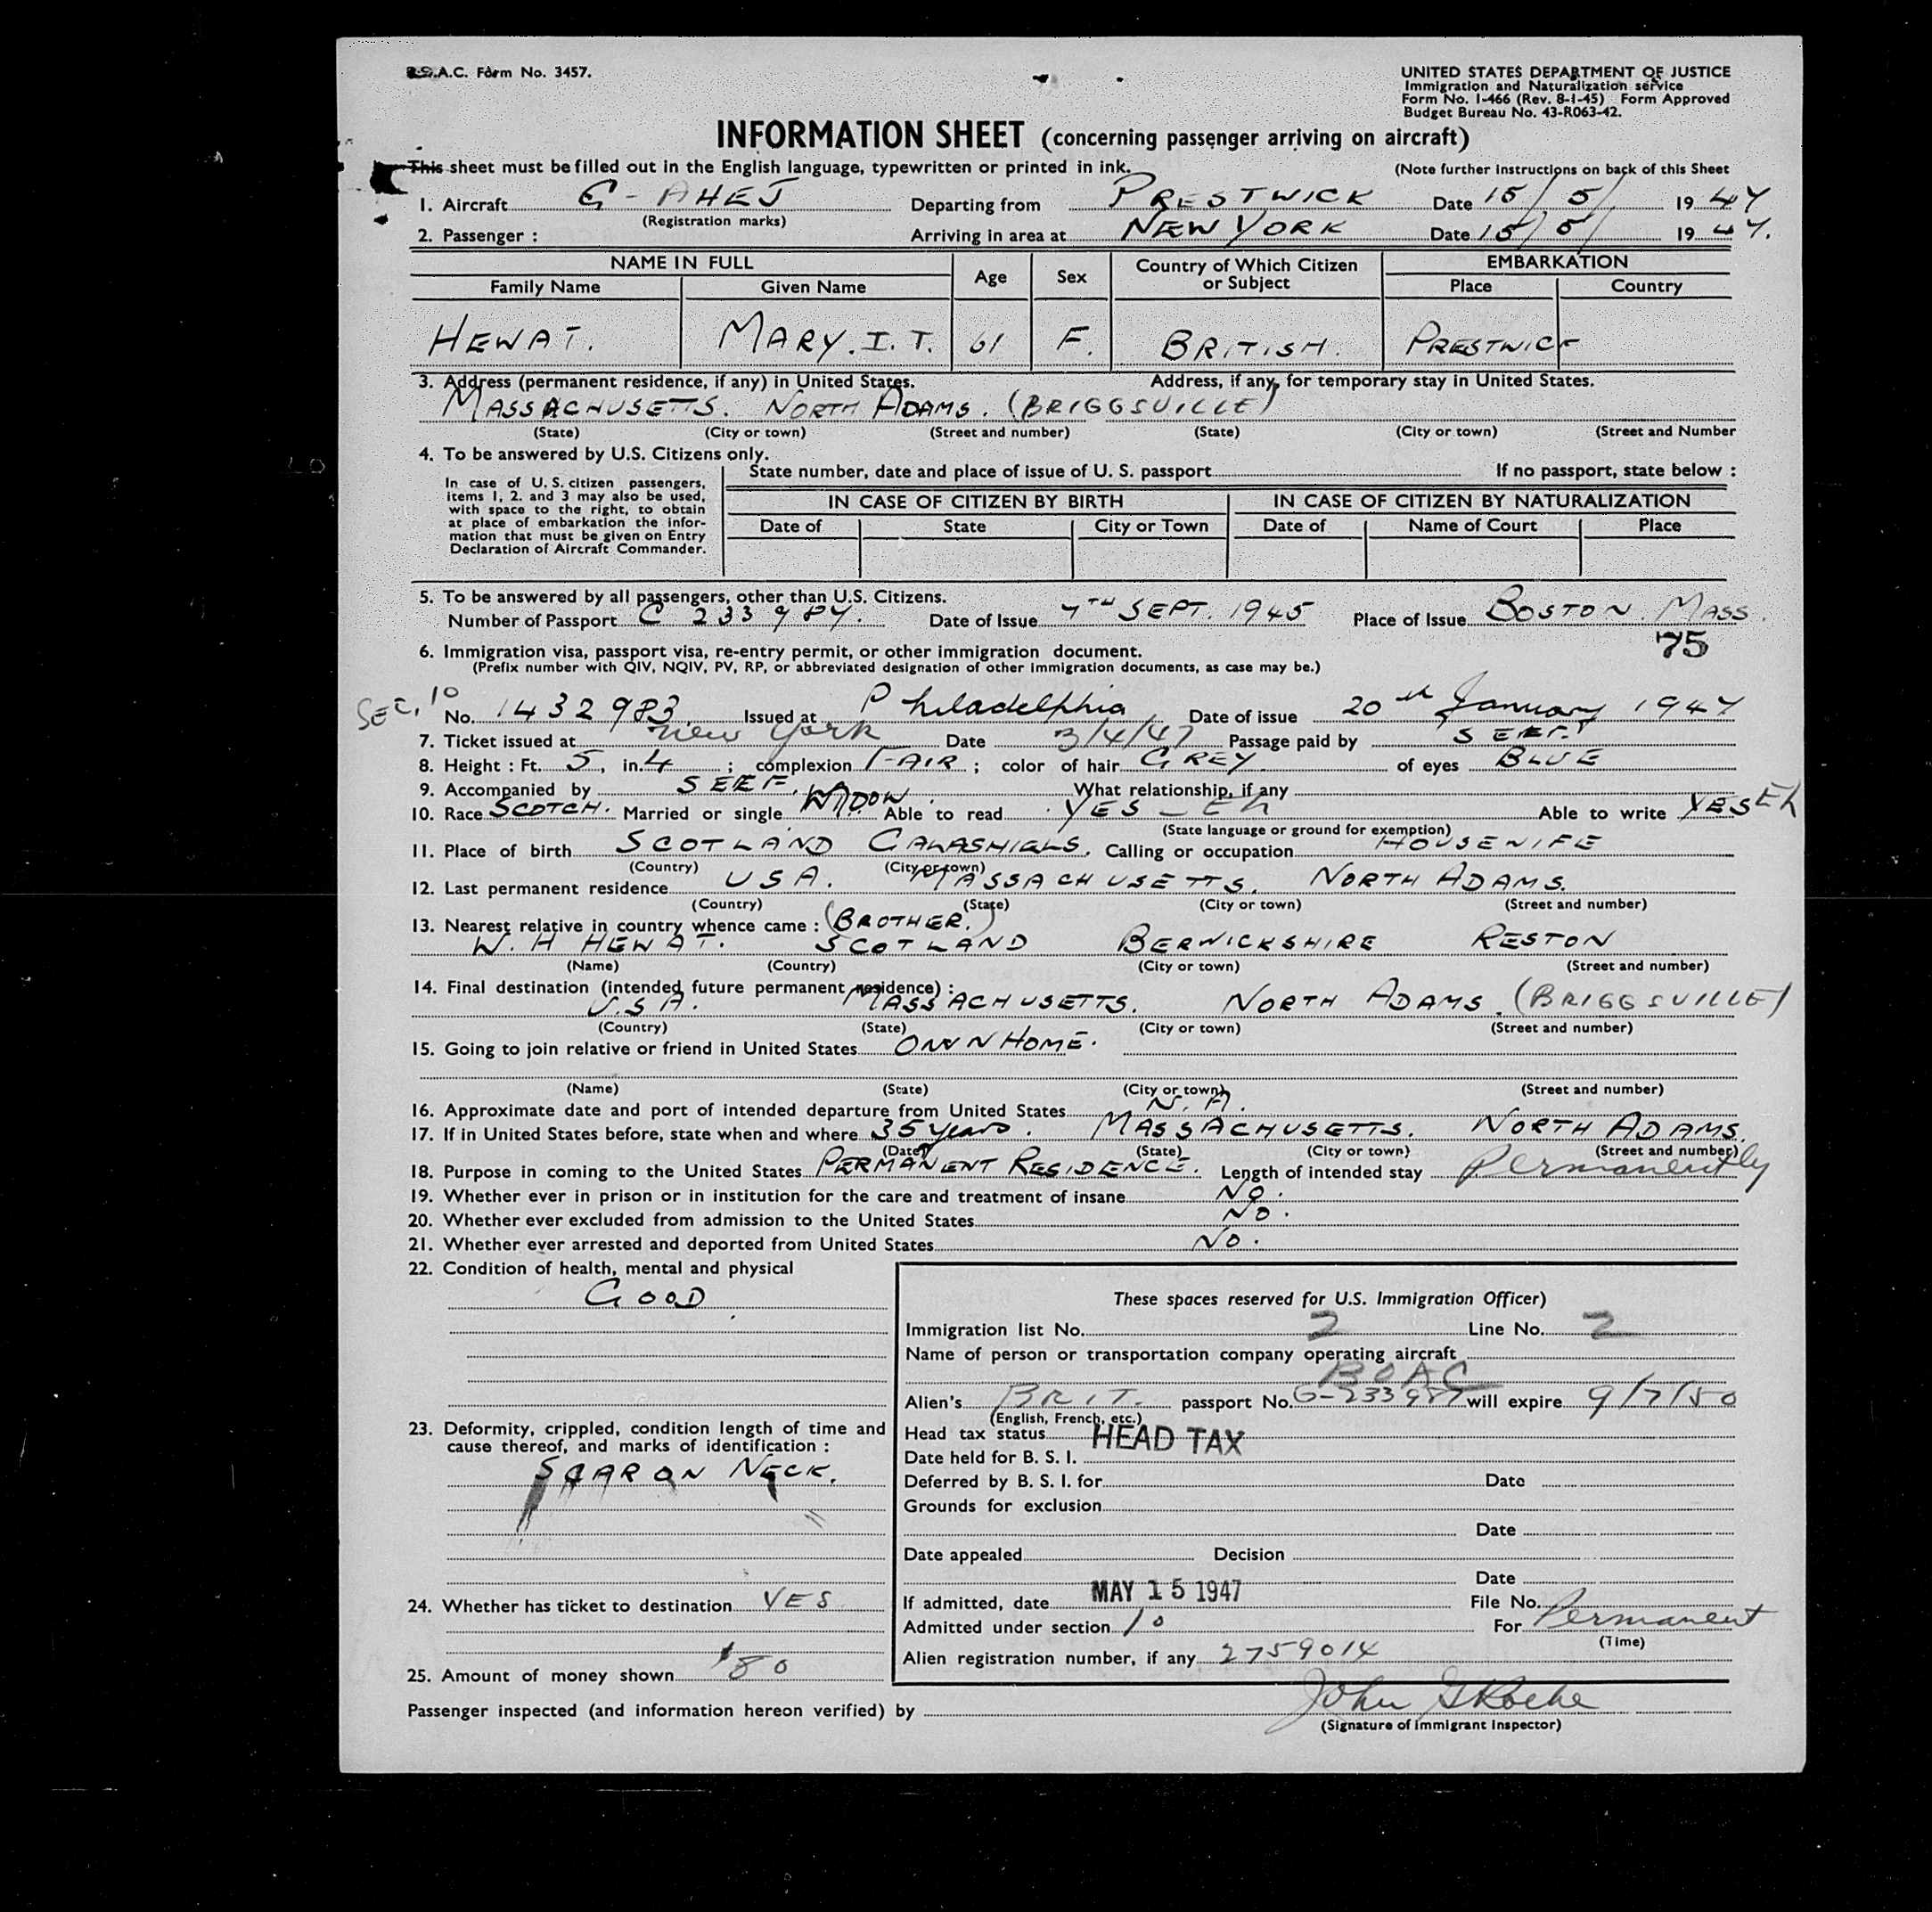 B.O.A.C. Form No. 3457.
UNITED STATES DEPARTMENT OF JUSTICE
Immigration and Naturalization service
Form No. I-466 (Rev. 8-1-45) Form Approved
Budget Bureau No. 43-R063-42.
INFORMATION SHEET (concerning passenger arriving on aircraft)
This sheet must be filled out in the English language, typewritten or printed in ink.
(Note further instructions on back of this Sheet
1. Aircraft G-AHEJ Departing from PRESTWICK Date 15/5/ 1947
(Registration marks)
2. Passenger : Arriving in area at NEW YORK Date 15/5/ 1947.
NAME IN FULL Age Sex Country of Which Citizen or Subject EMBARKATION
Family Name Given Name Place Country
HEWAT. MARY. I. T. 61 F. BRITISH. PRESTWICK
3. Address (permanent residence, if any) in United States. Address, if any, for temporary stay in United States.
MASSACHUSETTS. NORTH ADAMS. (BRIGGSVILLE)
(State) (City or town) (Street and number) (State) (City or town) (Street and Number
4. To be answered by U.S. Citizens only.
State number, date and place of issue of U. S. passport If no passport, state below :
In case of U. S. citizen passengers,
items 1, 2. and 3 may also be used,
with space to the right, to obtain
at place of embarkation the infor-
mation that must be given on Entry
Declaration of Aircraft Commander.
IN CASE OF CITIZEN BY BIRTH IN CASE OF CITIZEN BY NATURALIZATION
Date of State City or Town Date of Name of Court Place
5. To be answered by all passengers, other than U.S. Citizens.
Number of Passport C 233987. Date of Issue 7TH SEPT. 1945 Place of Issue BOSTON. MASS.
75
6. Immigration visa, passport visa, re-entry permit, or other immigration document.
(Prefix number with QIV, NQIV, PV, RP, or abbreviated designation of other immigration documents, as case may be.)
SEC. 10 No. 1432983. Issued at Philadelphia Date of issue 20th January 1947
7. Ticket issued at New York Date 3/4/47 Passage paid by SELF.
8. Height : Ft. 5, in. 4 ; complexion FAIR ; color of hair GREY of eyes BLUE
9. Accompanied by SELF. What relationship, if any
10. Race SCOTCH. Married or single WIDOW. Able to read YES - Eh Able to write YES Eh
(State language or ground for exemption)
11. Place of birth SCOTLAND GALASHIELS. Calling or occupation HOUSEWIFE
(Country) (City or town)
12. Last permanent residence USA. MASSACHUSETTS. NORTH ADAMS.
(Country) (State) (City or town) (Street and number)
13. Nearest relative in country whence came : (BROTHER.)
W. H HEWAT. SCOTLAND BERWICKSHIRE RESTON
(Name) (Country) (City or town) (Street and number)
14. Final destination (intended future permanent residence) :
U.S.A. MASSACHUSETTS. NORTH ADAMS. (BRIGGSVILLE)
(Country) (State) (City or town) (Street and number)
15. Going to join relative or friend in United States OWN HOME.
(Name) (State) (City or town) (Street and number)
16. Approximate date and port of intended departure from United States N. A.
17. If in United States before, state when and where 35 years. MASSACHUSETTS. NORTH ADAMS.
(Date) (State) (City or town) (Street and number)
18. Purpose in coming to the United States PERMANENT RESIDENCE. Length of intended stay Permanently
19. Whether ever in prison or in institution for the care and treatment of insane NO.
20. Whether ever excluded from admission to the United States NO.
21. Whether ever arrested and deported from United States NO.
22. Condition of health, mental and physical
GOOD
These spaces reserved for U.S. Immigration Officer)
Immigration list No. 2 Line No. 2
Name of person or transportation company operating aircraft
BOAC
Alien's BRIT. passport No. C-233987 will expire 9/7/50
(English, French, etc.)
23. Deformity, crippled, condition length of time and
cause thereof, and marks of identification :
SCAR ON NECK.
Head tax status HEAD TAX
Date held for B. S. I.
Deferred by B. S. I. for Date
Grounds for exclusion
Date
Date appealed Decision
Date
24. Whether has ticket to destination YES
If admitted, date MAY 15 1947 File No.
Admitted under section 10 For Permanent
(Time)
Alien registration number, if any 2759014
25. Amount of money shown $80
Passenger inspected (and information hereon verified) by John G Roche
(Signature of Immigrant Inspector)